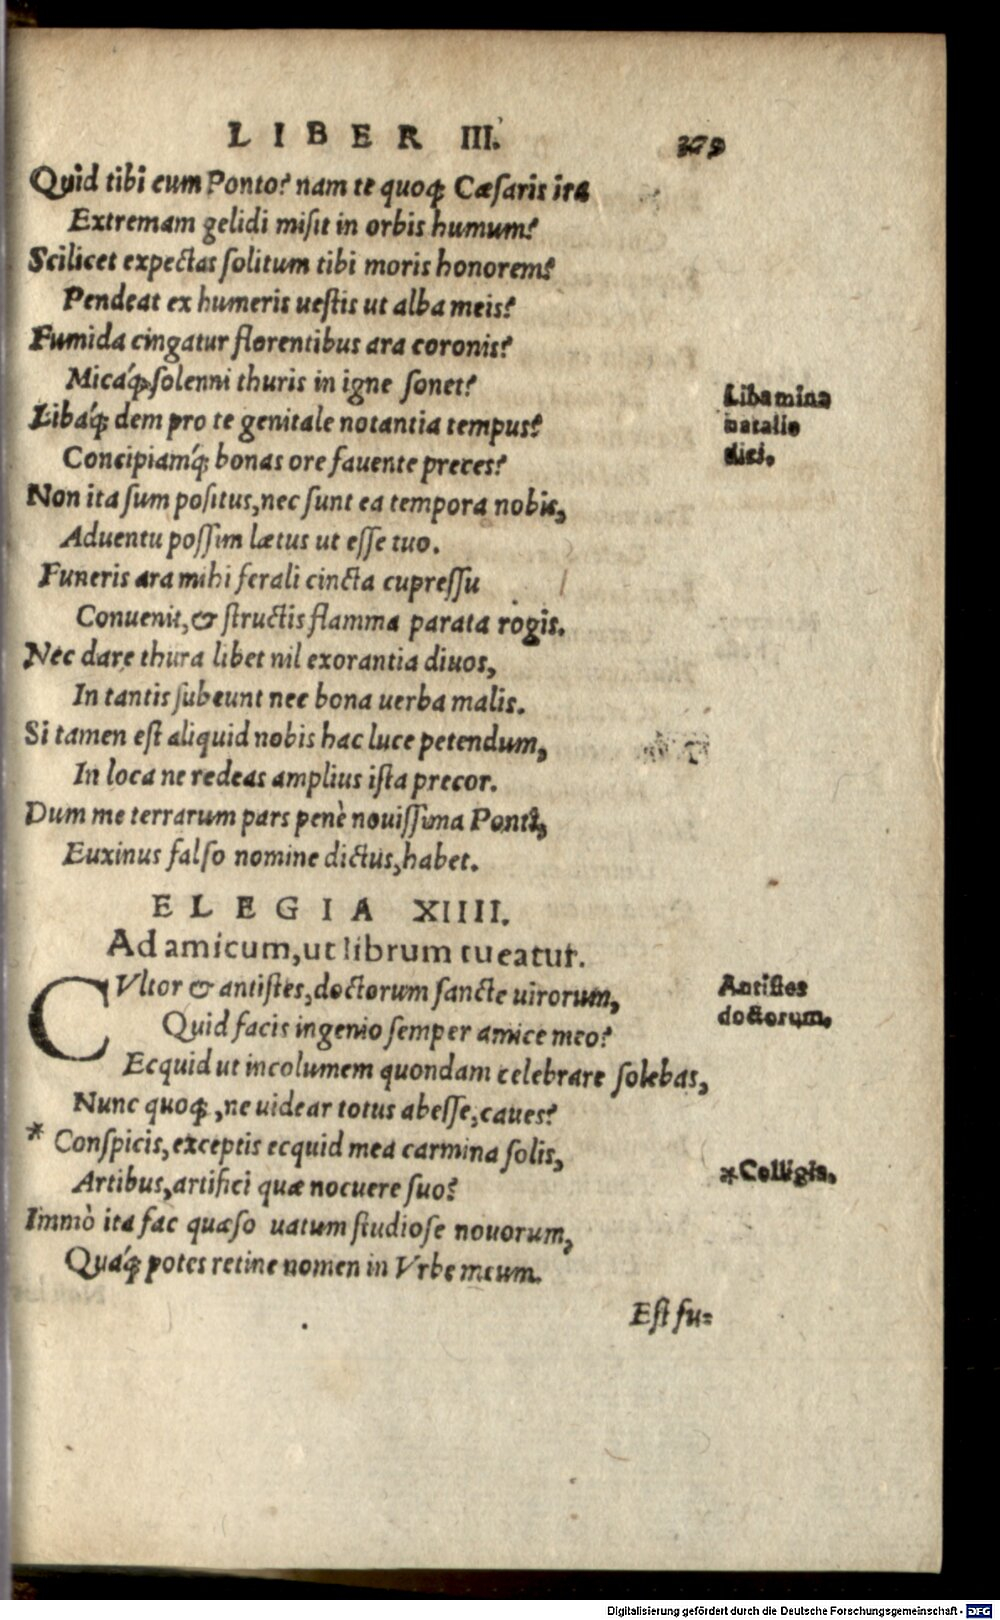 LIBER III. 279
Quid tibi cum Ponto? nam te quoq; Cæsaris ira
Extremam gelidi misit in orbis humum?
Scilicet expectas solitum tibi moris honorem?
Pendeat ex humeris uestis ut alba meis?
Fumida cingatur florentibus ara coronis?
Micaq́;, solenni thuris in igne sonet?
Libaq́; dem pro te genitale notantia tempus?
Concipiamq́; bonas ore fauente preces?
Libamina
natalis
diei.
Non ita sum positus, nec sunt ea tempora nobis,
Aduentu possim lætus ut esse tuo.
Funeris ara mihi ferali cincta cupressu
Conuenit, & structis flamma parata rogis.
Nec dare thura libet nil exorantia diuos,
In tantis subeunt nec bona uerba malis.
Si tamen est aliquid nobis hac luce petendum,
In loca ne redeas amplius ista precor.
Dum me terrarum pars penè nouissima Ponti,
Euxinus falso nomine dictus, habet.
ELEGIA XIIII.
Ad amicum, ut librum tueatur.
CVltor & antistes, doctorum sancte uirorum,
Quid facis ingenio semper amice meo?
Antistes
doctorum.
Ecquid ut incolumem quondam celebrare solebas,
Nunc quoq;, ne uidear totus abesse, caues?
* Conspicis, exceptis ecquid mea carmina solis,
Artibus, artifici quæ nocuere suo?
*Colligis.
Immò ita fac quæso uatum studiose nouorum,
Quaq́; potes retine nomen in Vrbe meum.
Est fu=
Digitalisierung gefördert durch die Deutsche Forschungsgemeinschaft - DFG